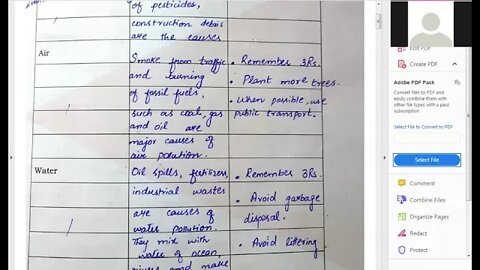 of pesticides,
construction debris
are the causes
Air
Smoke from traffic
and burning
of fossil fuels.
such as coal, gas
and oil are
major causes of
air pollution.
• Remember 3Rs.
• Plant more trees.
• When possible, use
public transport.
Water
Oil spills, fertilizers,
industrial wastes
are causes of
water pollution.
They mix with
water of ocean,
rivers and make
• Remember 3Rs.
• Avoid garbage
disposal.
• Avoid littering
Edit PDF
Create PDF
Adobe PDF Pack
Convert files to PDF and
easily combine them with
other file types with a paid
subscription.
Select File to Convert to PDF
Select File
Comment
Combine Files
Organize Pages
Redact
Protect